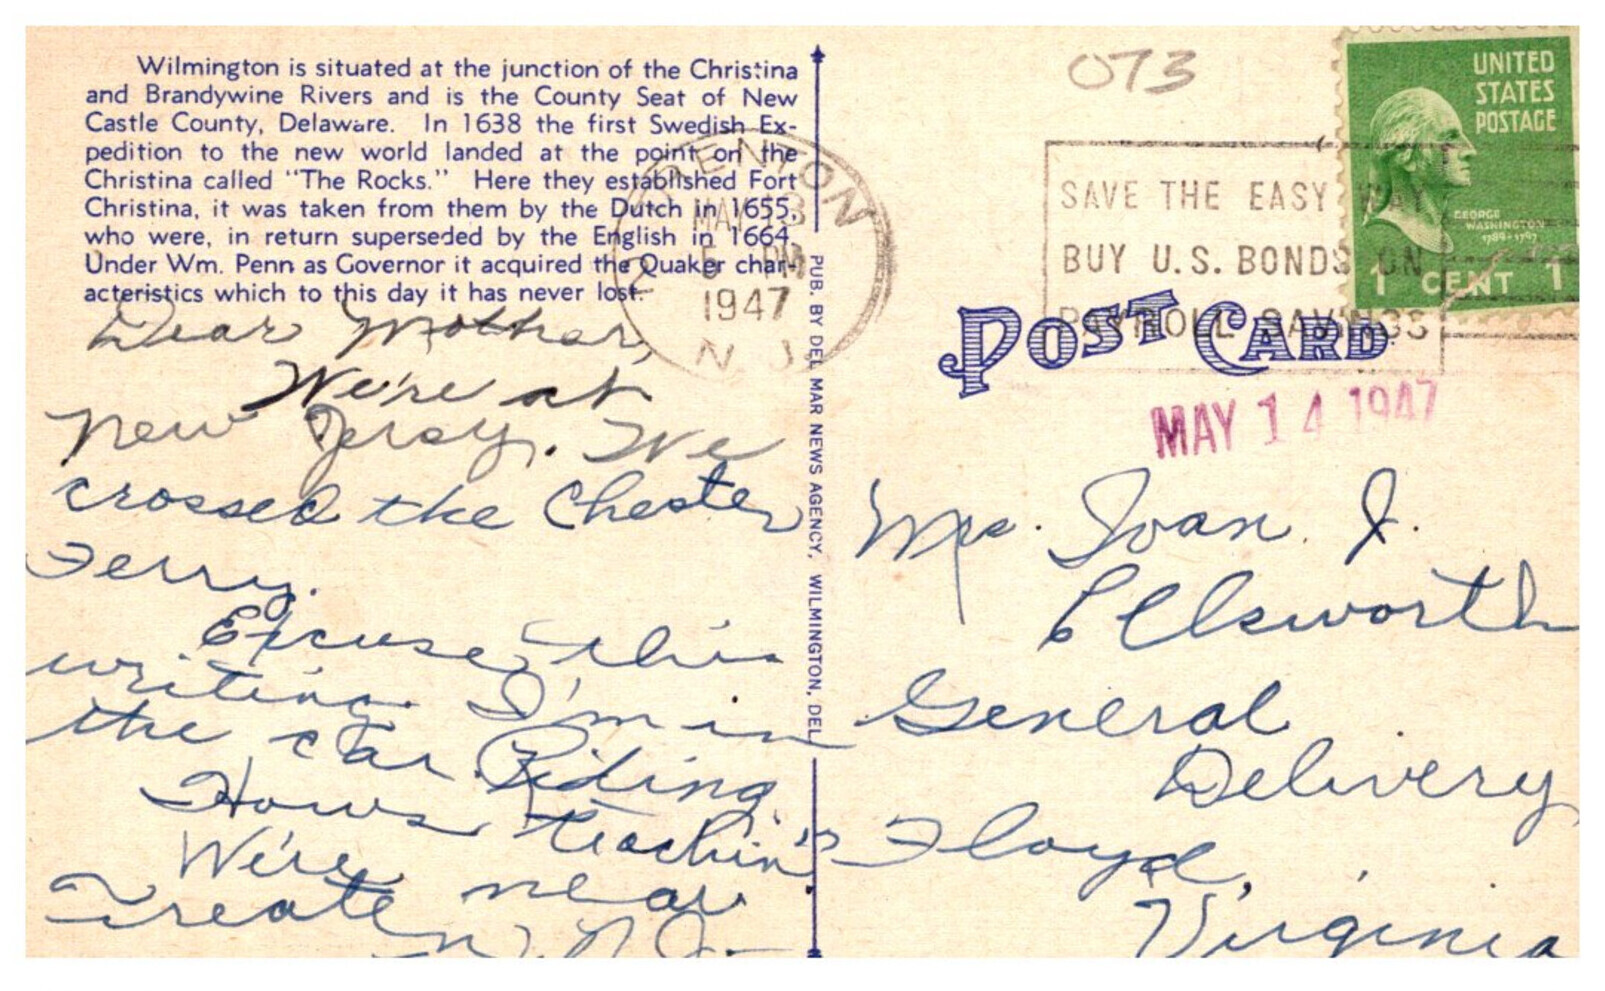 Wilmington is situated at the junction of the Christina
and Brandywine Rivers and is the County Seat of New
Castle County, Delaware. In 1638 the first Swedish Ex-
pedition to the new world landed at the point on the
Christina called "The Rocks." Here they established Fort
Christina, it was taken from them by the Dutch in 1655,
who were, in return superseded by the English in 1664.
Under Wm. Penn as Governor it acquired the Quaker char-
acteristics which to this day it has never lost.
Dear Mother,
We're at
New Jersey. We
crossed the Chester
Ferry.
Excuse this
writing. I'm in
the car. Riding
Hows teachin'?
We're near
Trenton, N.J.
TRENTON
MAY 13
6 PM
1947
N.J.
2
PUB. BY DEL MAR NEWS AGENCY, WILMINGTON, DEL
073
UNITED
STATES
POSTAGE
GEORGE
WASHINGTON
1789-1797
1 CENT 1
SAVE THE EASY WAY
BUY U.S. BONDS ON
PAYROLL SAVINGS
POST CARD
MAY 14 1947
Mrs. Ivan J.
Ellsworth
General
Delivery
Floyd,
Virginia